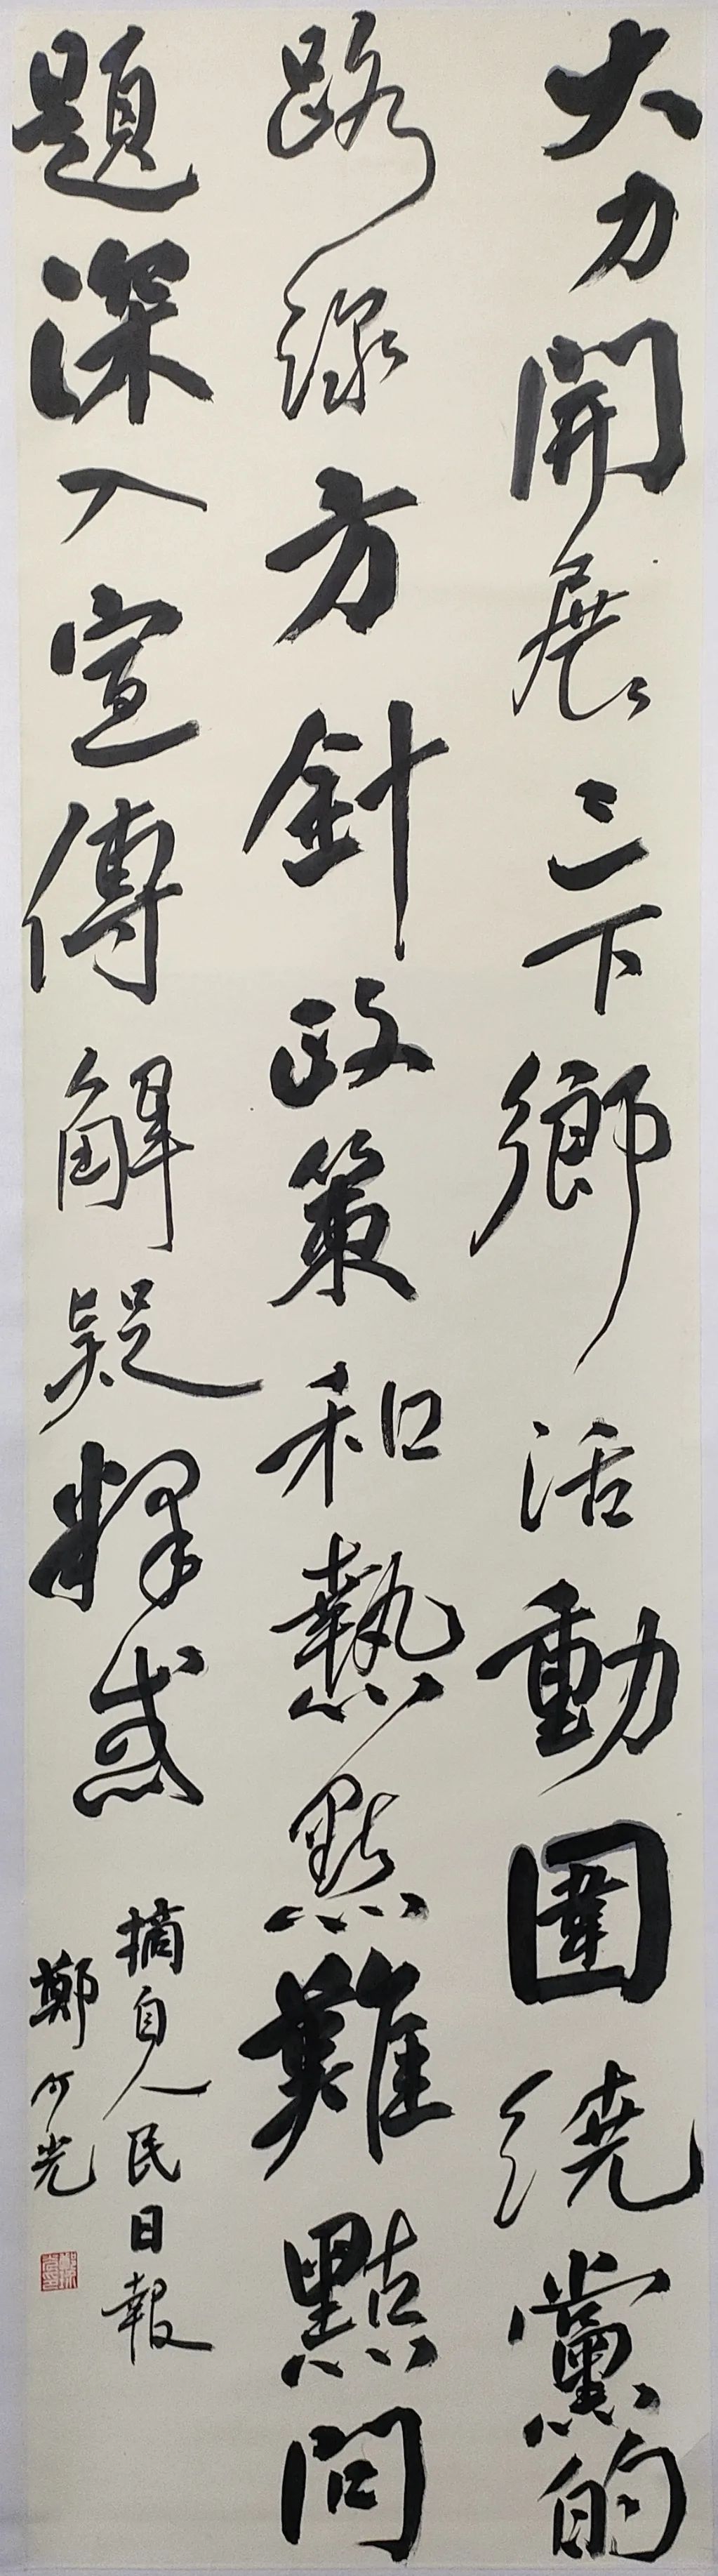 大力開展三下鄉活動圍繞黨的
路線方針政策和熱點難點問
題深入宣傳解疑释惑
摘自人民日報
鄭光